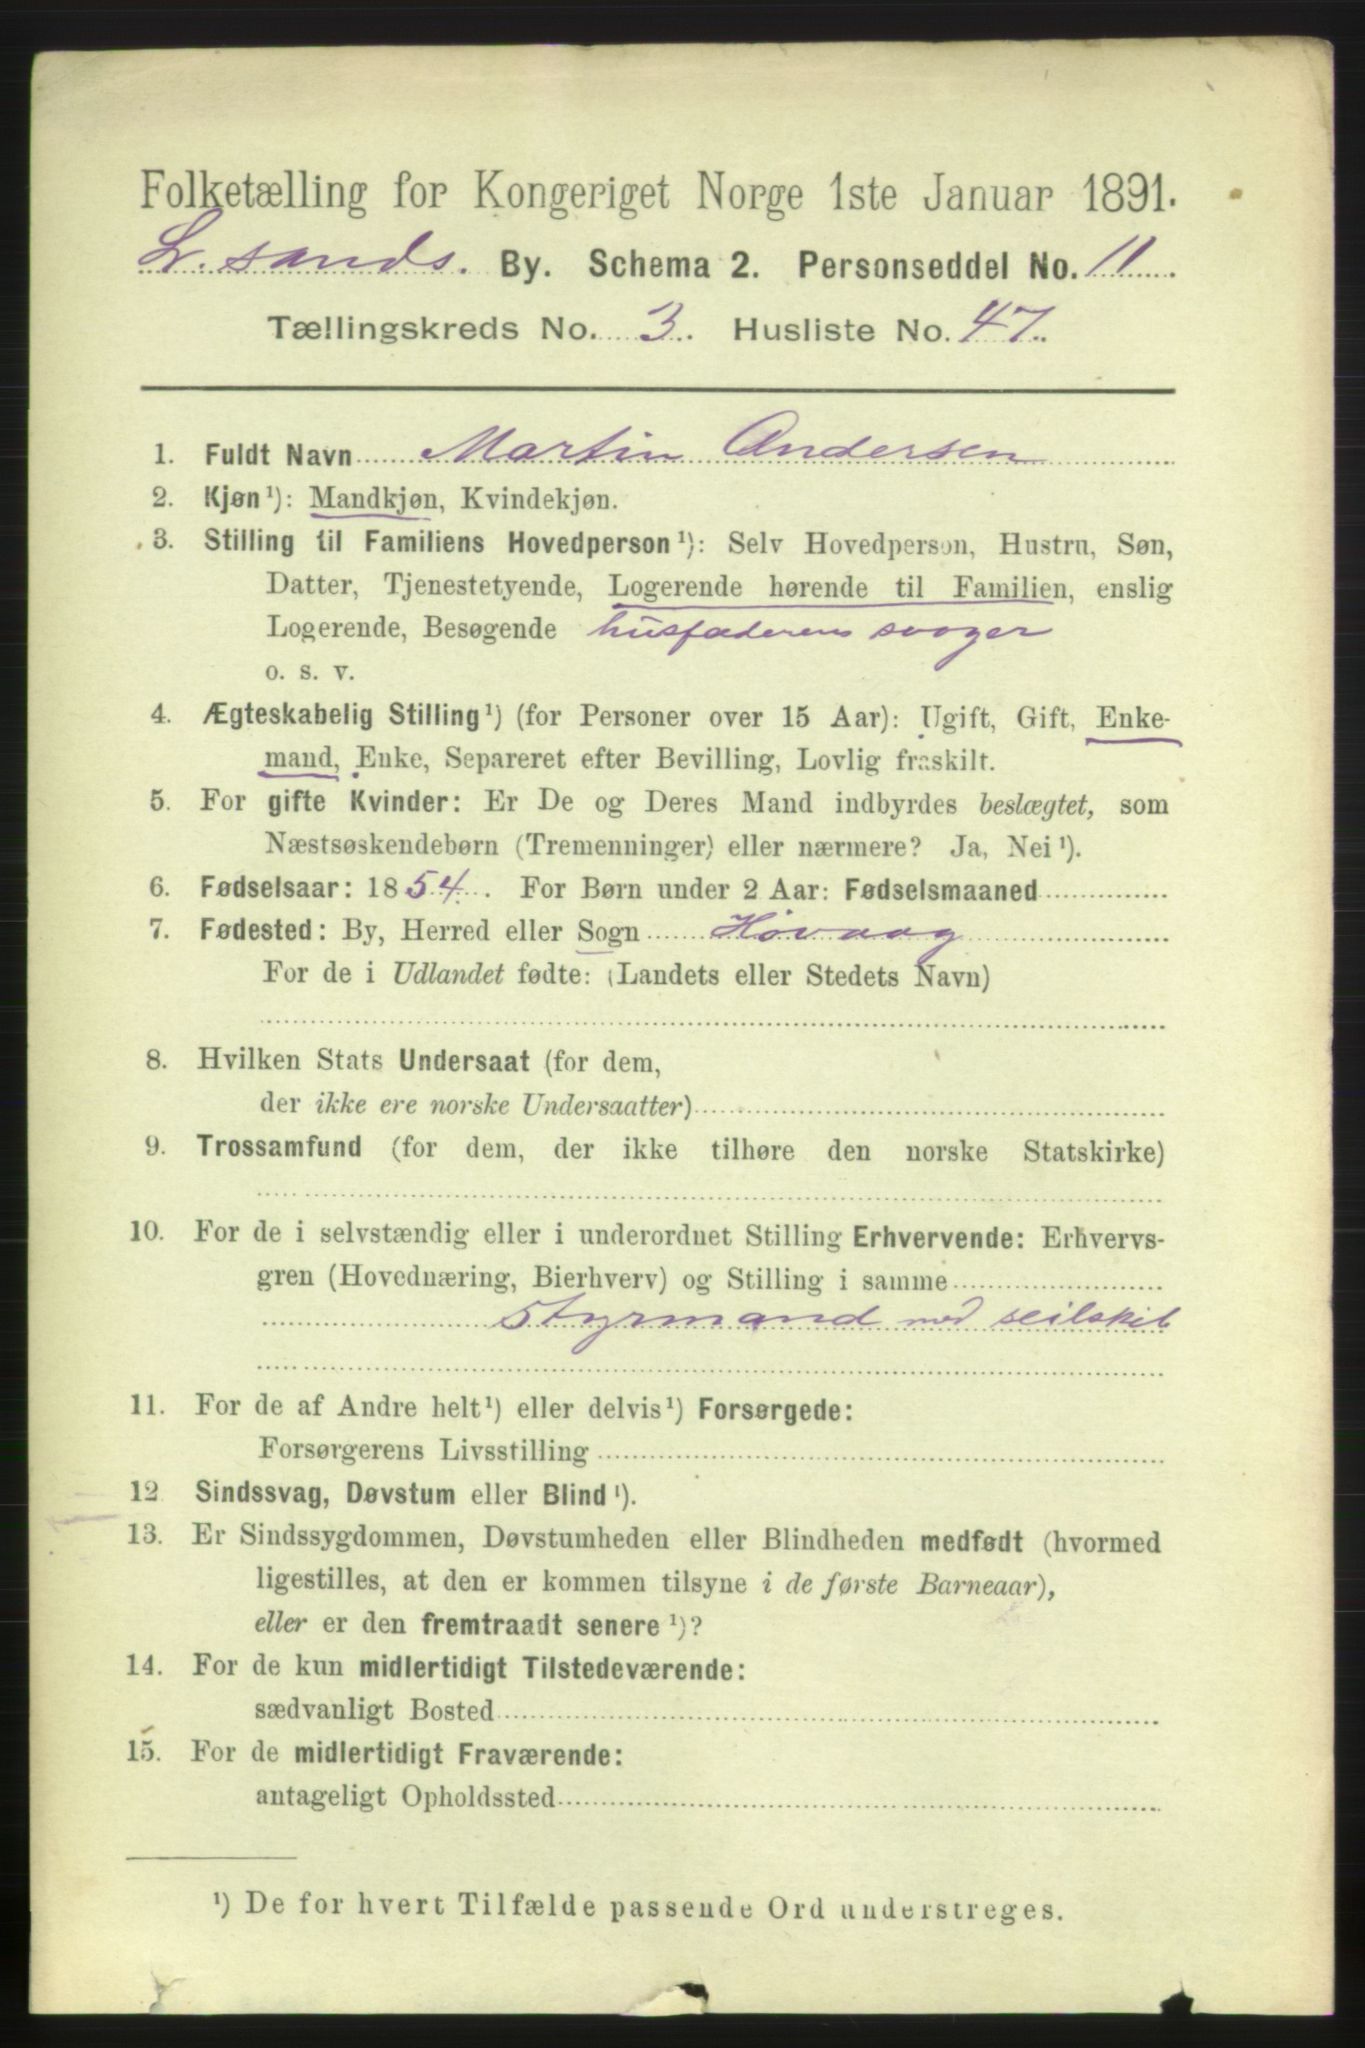 Folketælling for Kongeriget Norge 1ste Januar 1891.
L. sands. By. Schema 2. Personseddel No. 11
Tællingskreds No. 3. Husliste No. 47.
1. Fuldt Navn Martin Andersen
2. Kjøn¹): Mandkjøn, Kvindekjøn.
3. Stilling til Familiens Hovedperson¹): Selv Hovedperson, Hustru, Søn,
Datter, Tjenestetyende, Logerende hørende til Familien, enslig
Logerende, Besøgende husfaderens svoger
o. s. v.
4. Ægteskabelig Stilling¹) (for Personer over 15 Aar): Ugift, Gift, Enke-
mand, Enke, Separeret efter Bevilling, Lovlig fraskilt.
5. For gifte Kvinder: Er De og Deres Mand indbyrdes beslægtet, som
Næstsøskendebørn (Tremenninger) eller nærmere? Ja, Nei¹).
6. Fødselsaar: 1854. For Børn under 2 Aar: Fødselsmaaned
7. Fødested: By, Herred eller Sogn Høvaag
For de i Udlandet fødte: (Landets eller Stedets Navn)
8. Hvilken Stats Undersaat (for dem,
der ikke ere norske Undersaatter)
9. Trossamfund (for dem, der ikke tilhøre den norske Statskirke)
10. For de i selvstændig eller i underordnet Stilling Erhvervende: Erhvervs-
gren (Hovednæring, Bierhverv) og Stilling i samme
Styrmand med seilskib
11. For de af Andre helt¹) eller delvis¹) Forsørgede:
Forsørgerens Livsstilling
12 Sindssvag, Døvstum eller Blind¹).
13. Er Sindssygdommen, Døvstumheden eller Blindheden medfødt (hvormed
ligestilles, at den er kommen tilsyne i de første Barneaar),
eller er den fremtraadt senere¹)?
14. For de kun midlertidigt Tilstedeværende:
sædvanligt Bosted
15. For de midlertidigt Fraværende:
antageligt Opholdssted
¹) De for hvert Tilfælde passende Ord understreges.